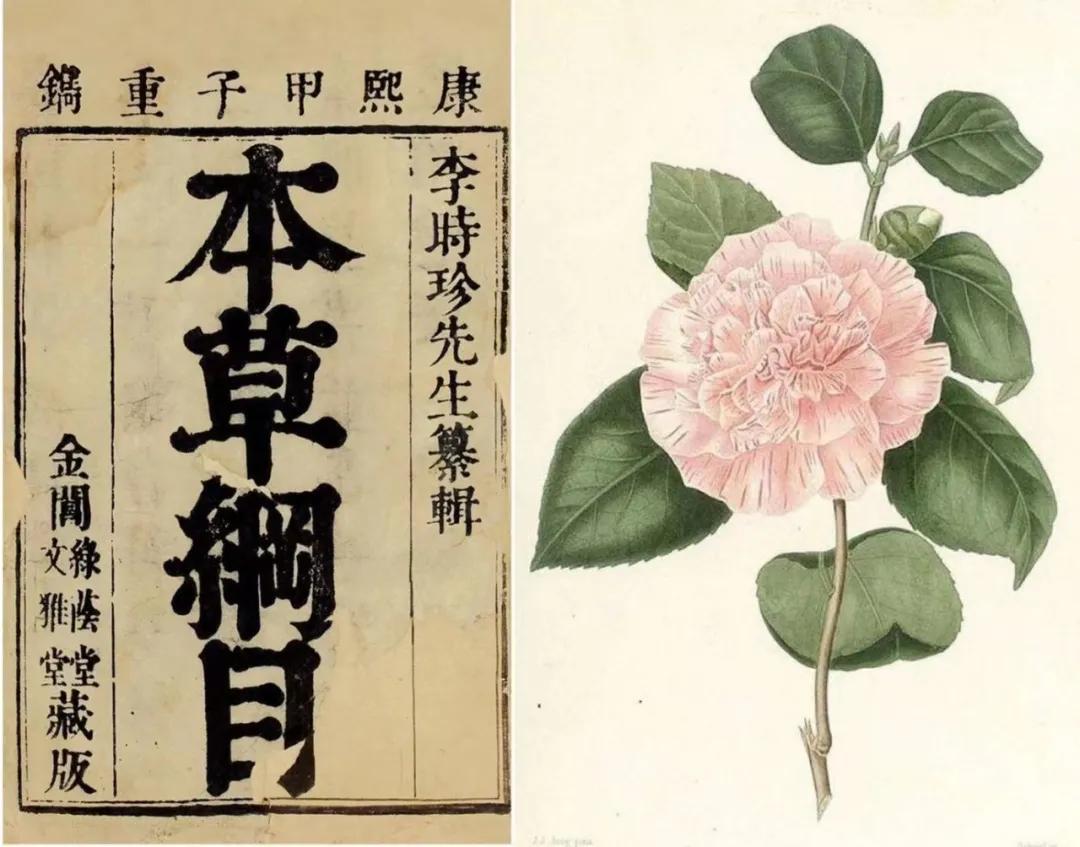 康熙甲子重鐫
李時珍先生纂輯
本草綱目
金閶
綠蔭堂
文雅堂
藏版